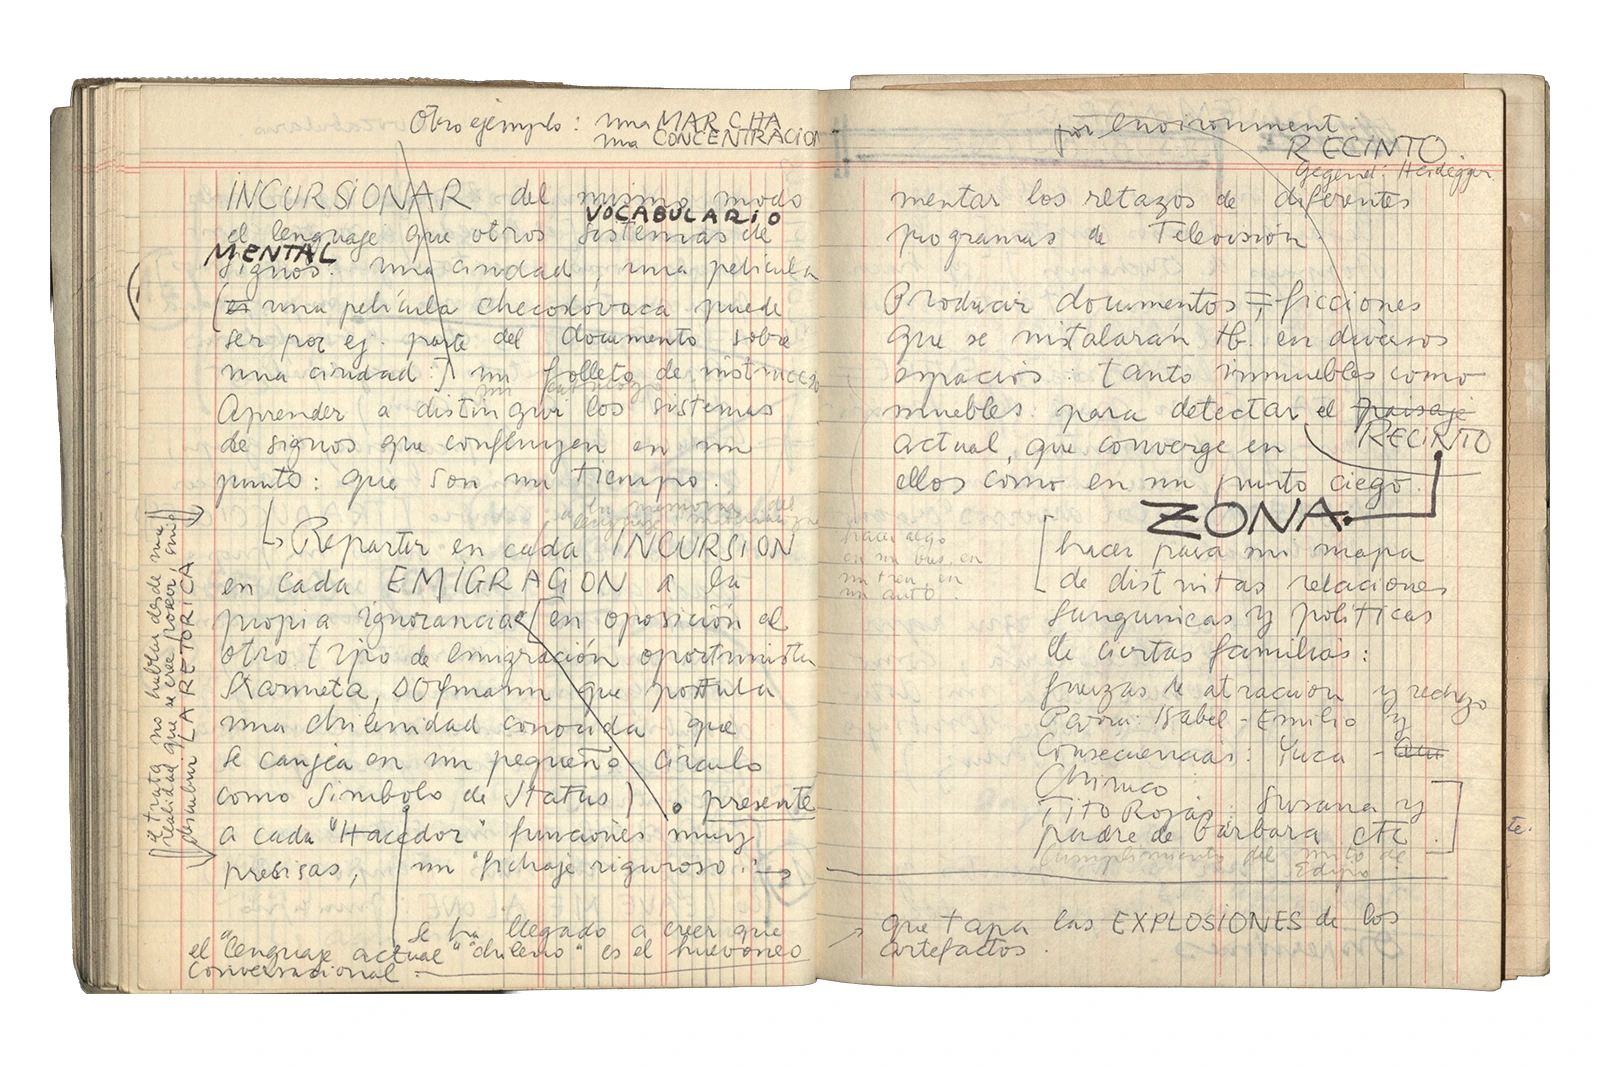 Otro ejemplo: una MARCHA
una CONCENTRACION
INCURSIONAR del mismo modo
VOCABULARIO
el lenguaje que otros sistemas de
MENTAL
signos: una ciudad una película
(una película checoslovaca puede
ser por ej. parte del documento sobre
una ciudad) un folleto de
un catálogo
Aprender a distinguir los sistemas
de signos que confluyen en un
punto: que son un tiempo.
a la memoria del
lenguaje
Repartir en cada INCURSION
en cada EMIGRACION a la
propia ignorancia (en oposición al
otro tipo de emigración oportunista
Skarmeta, Dorfmann que postula
una chilenidad conocida que
se canjea en un pequeño círculo
como símbolo de status) presente
a cada "Hacedor" funciones muy
precisas, un "fichaje riguroso".
se ha llegado a creer que
el "lenguaje actual" "chileno" es el hueveneo
conversacional
se trata no hablar desde una
realidad que se cree poseer, sino
descubrir LA RETORICA
por environment:
RECINTO
Gegend: Heidegger
mentar los retazos de diferentes
programas de Televisión
Producir documentos = ficciones
que se instalarán tb. en diversos
espacios: tanto inmuebles como
muebles: para detectar el paisaje
RECINTO
actual, que converge en
ellos como en un punto ciego.
ZONA
hacer algo
en un bus, en
un tren, en
un auto.
hacer para mi mapa
de distintas relaciones
sanguineas y políticas
de ciertas familias:
fuerzas de atracción y rechazo
Parra: Isabel - Emilio y
Consecuencias: Yuca -
Chirico
Tito Rojas: Susana y
padre de Bárbara etc
Cumplimiento del mito de
Edipo
que tapa las EXPLOSIONES de los
artefactos.
te.